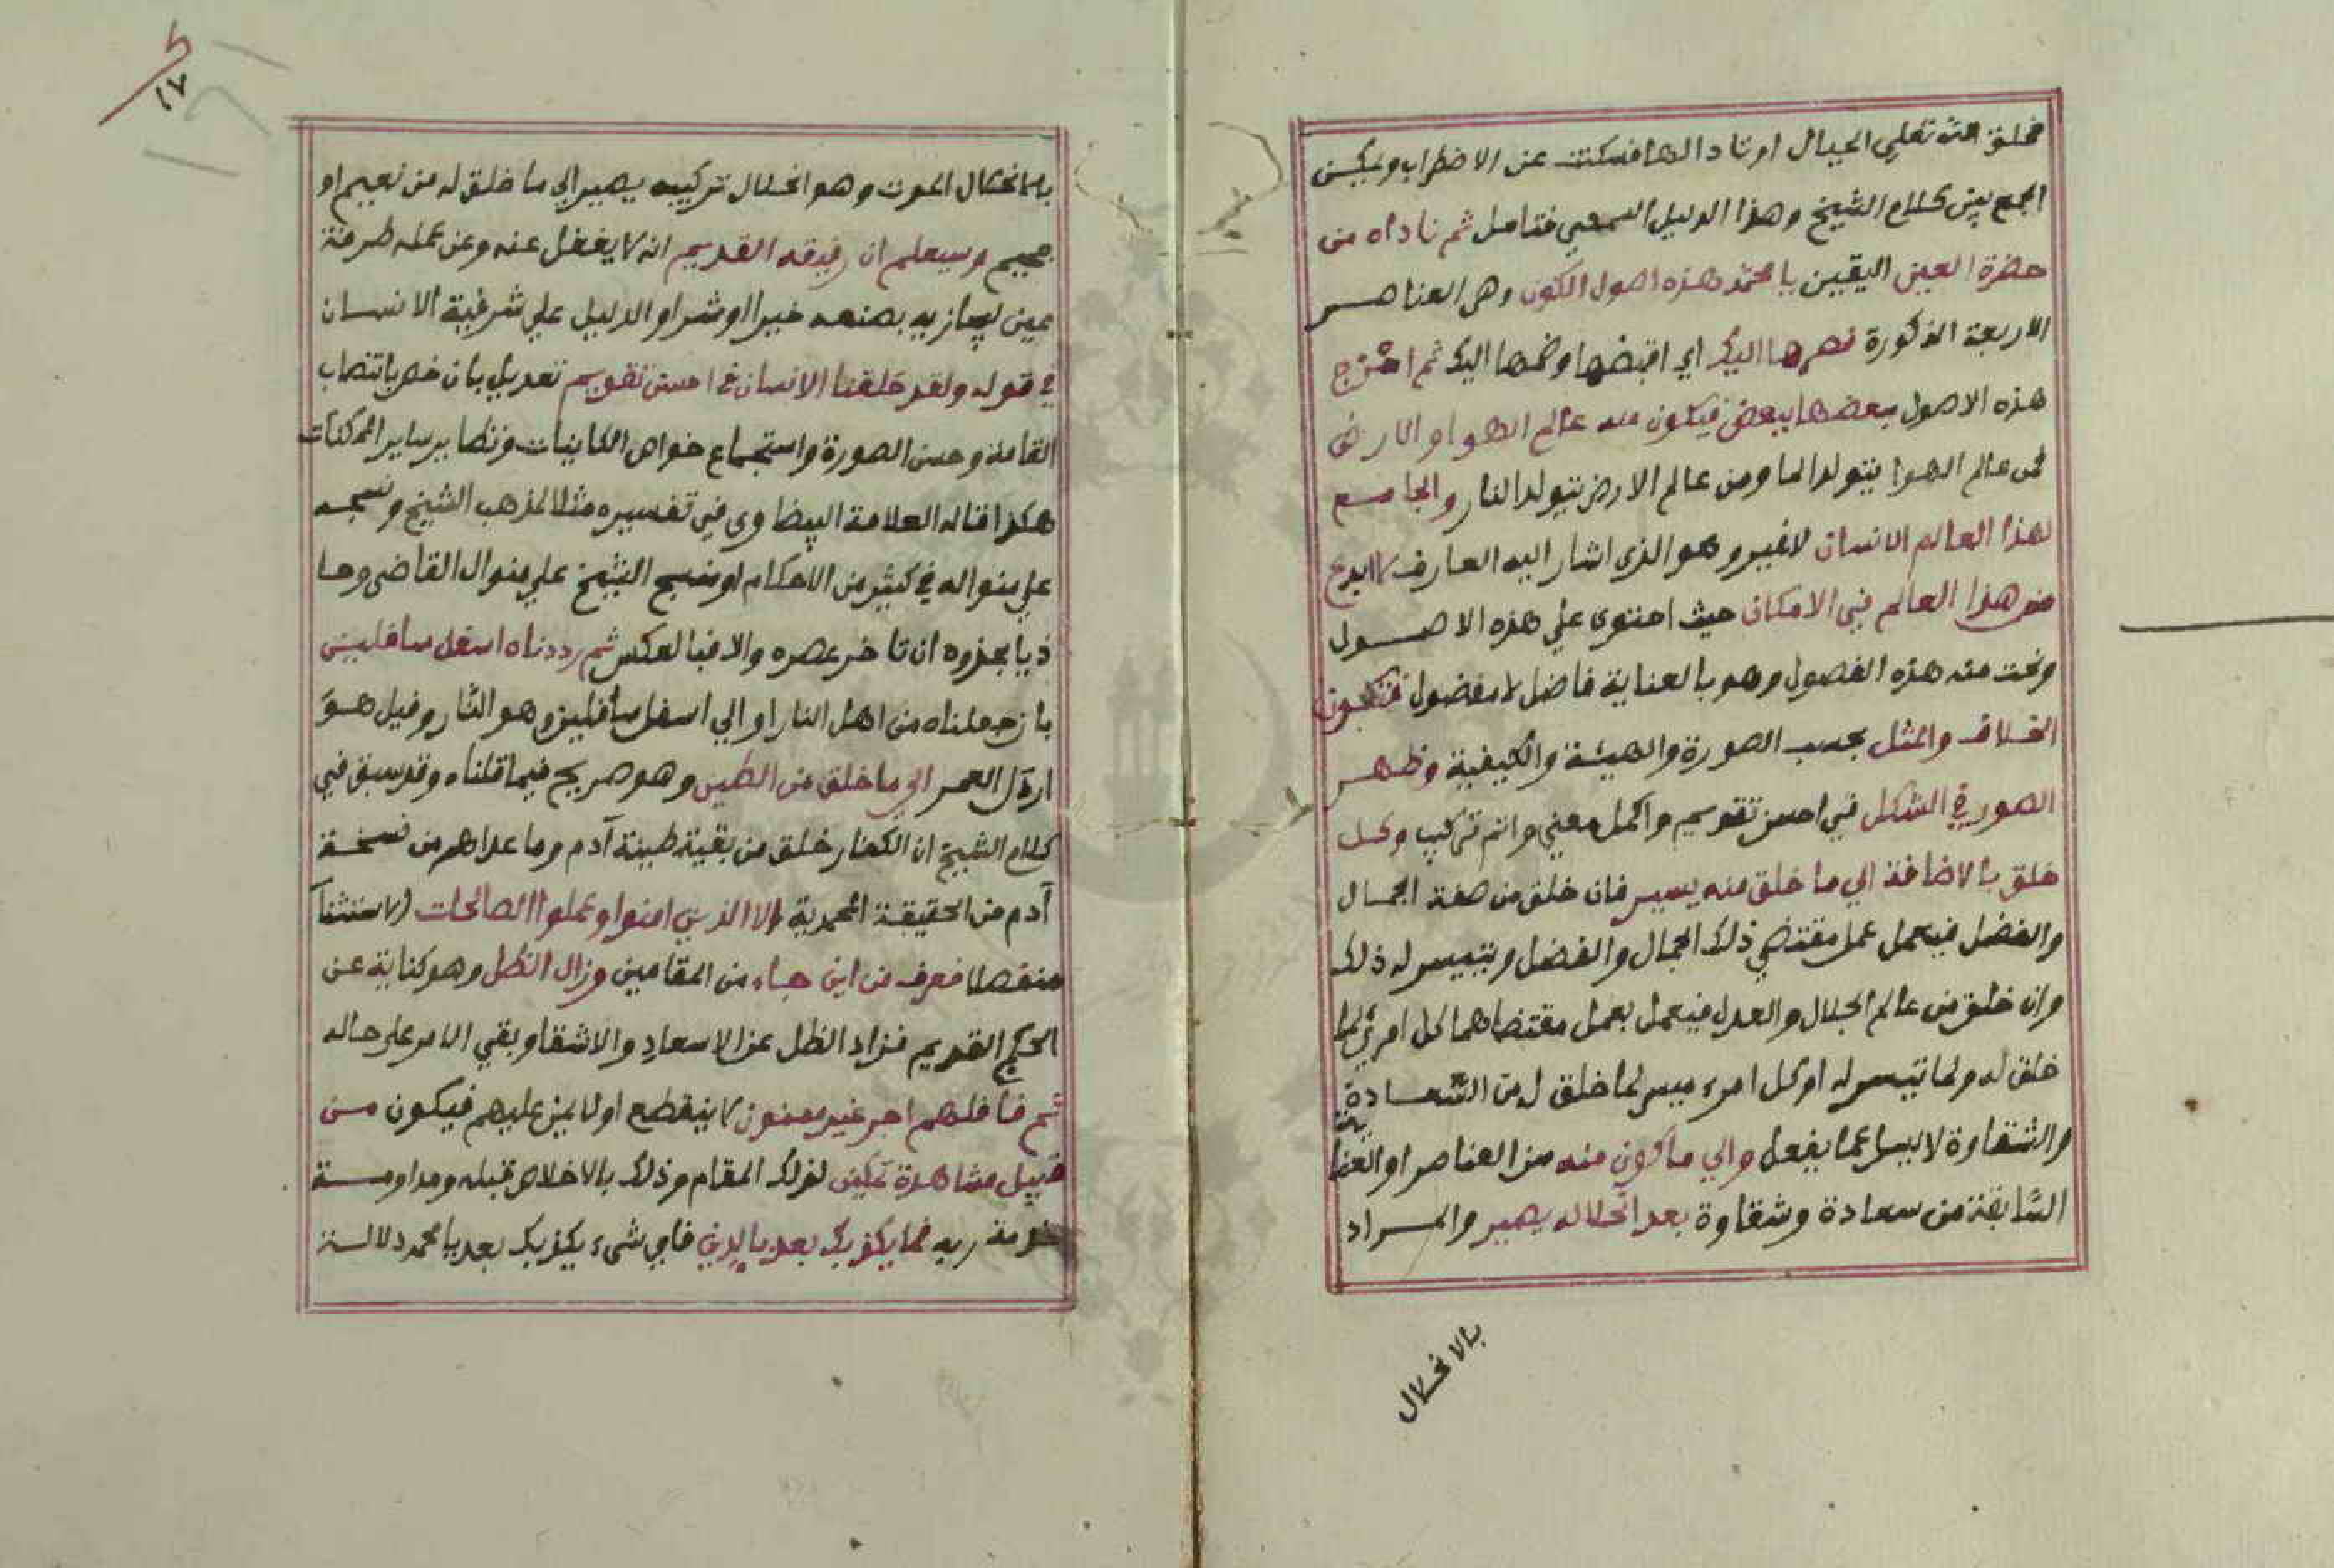 فخلق الله تعلي الجبال اوتادا لها فسكنت عن الاضطراب ويمكن
الجمع بين كلام الشيخ وهذا الدليل السمعي فتامل ثم ناداه من
حضرة العين اليقين يا محمد هذه اصول الكون وهي العناصر
الاربعة المذكورة فصرها اليك اي اقبضها وضمها اليك ثم امزج
هذه الاصول بعضها ببعض فيكون منه عالم الهوا والارض
فمن عالم الهوا يتولد الما ومن عالم الارض يتولد النار والجامع
لهذا العالم الانسان لا غير وهو الذي اشار اليه العارف لا ابدع
من هذا العالم في الامكان حيث احتوى علي هذه الاصول
ونحت منه هذه الفصول وهو بالعناية فاضل لا مفضول فتكون
الخلاف والمثل بحسب الصورة والهيئة والكيفية وظهر
الصور في الشكل في احسن تقويم واكمل معني واتم تركيب وكل
خلق بالاضافة الي ما خلق منه يسير فان خلق من صفة الجمال
والفضل فيعمل عمل مقتضي ذلك الجمال والفضل ويتيسر له ذلك
وان خلق من عالم الجلال والعدل فيعمل بعمل مقتضاهما كل امرئ لما
خلق له ولما تيسر له او كل امرء ميسر لما خلق له من السعادة
والشقاوة لا يسل عما يفعل والي ما كون منه من العناصر او العنا
السابقة من سعادة وشقاوة بعد انحلاله يصير والمراد
بالانحلال
١٧
بالانحلال الموت وهو انحلال تركيبه يصير الي ما خلق له من نعيم او
جحيم وسيعلم ان رفيقه القديم انه لا يغفل عنه وعن عمله طرفة
عين ليجازيه بصنعه خيرا او شرا والدليل علي شرفية الانسان
في قوله ولقد خلقنا الانسان في احسن تقويم تعديل بان خص بانتصاب
القامة وحسن الصورة واستجماع خواص الكاينات ونظاير ساير الممكنات
هكذا قاله العلامة البيضاوي في تفسيره مثلا لمذهب الشيخ ونسجه
علي منواله في كثير من الاحكام او نسج الشيخ علي منوال القاضي وحا
ذيا بحذوه ان تاخر عصره والا فبالعكس ثم رددناه اسفل سافلين
بان جعلناه من اهل النار او الي اسفل سافلين وهو النار وقيل هو
ارذل العمر الي ما خلق من الطين وهو صريح فيما قلناه وقد سبق في
كلام الشيخ ان الكفار خلق من بقية طينة آدم وما عداهم من نسخة
آدم من الحقيقة المحمدية الا الذين امنوا وعملوا الصالحات الاستثنآ
منقصلا فعرف من اين جاء من المقامين وزال الظل وهو كناية عن
الحكم القديم فزاد الظل عن الاسعاد والاشقا وبقي الامر علي حاله
ثم فافلهم اجر غير ممنون لا ينقطع او لا يمن عليهم فيكون من
قبيل مشاهدة تمكين لذلك المقام وذلك بالاخلاص قبله ومداومة
خدمة ربه فما يكذبك بعد بالدين فاي شيء يكذبك بعد يا محمد دلالة